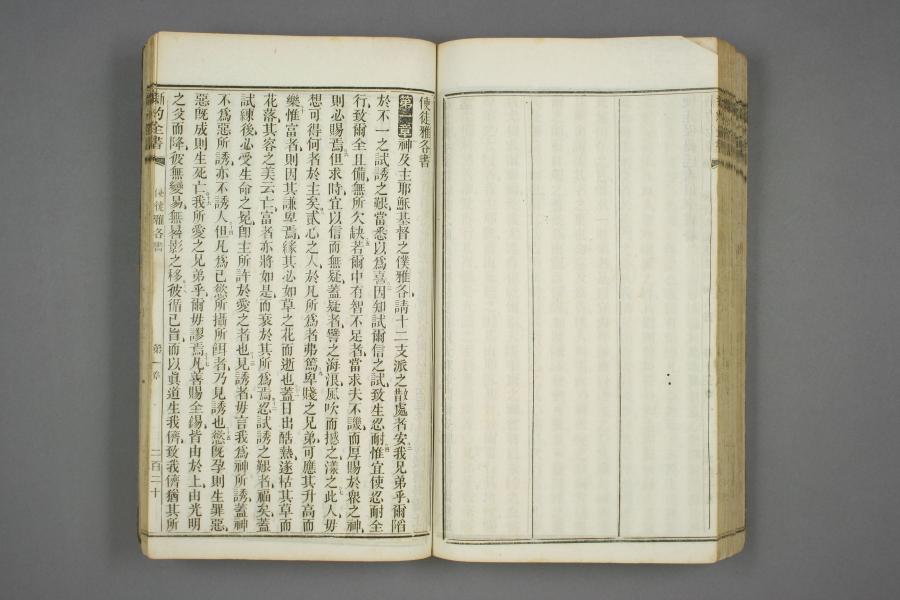 使徒雅各書
第一章神及主耶穌基督之僕雅各請十二支派之散處者安我兄弟乎爾陷
於不一之試誘之艱當悉以爲喜因知試爾信之試致生忍耐惟宜使忍耐全
行致爾全且備無所欠缺若爾中有智不足者當求夫不譏而厚賜於衆之神
則必賜焉但求時宜以信而無疑蓋疑者譬之海浪風吹而撼之漾之此人毋
想可得何者於主矣貳心之人於凡所爲者弗篤卑賤之兄弟可應其升高而
樂惟富者則因其謙卑焉緣其必如草之花而逝也蓋日出酷熱遂枯其草而
花落其容之美云亡富者亦將如是而衰於其所爲焉忍試誘之艱者福矣蓋
試練後必受生命之冕卽主所許於愛之者也見誘者毋言我爲神所誘蓋神
不爲惡所誘亦不誘人但凡爲己慾所攝所餌者乃見誘也慾旣孕則生罪惡
惡旣成則生死亡我所愛之兄弟乎爾毋謬焉凡善賜全錫皆由於上由光明
之父而降彼無變易無晷影之移彼循己旨而以眞道生我儕致我儕猶其所
新約全書 使徒雅各書 第一章 二百二十